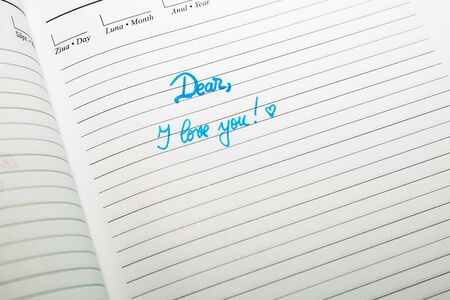 Ziua • Day Luna • Month Anul • Year
Dear,
I love you! ♡